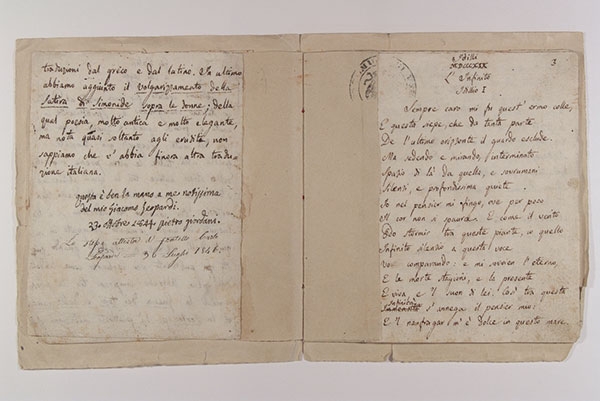 traduzioni dal greco e dal latino. In ultimo
abbiamo aggiunto il volgarizzamento della
Satira di Simonide sopra le donne; della
qual poesia, molto antica e molto elegante,
ma nota quasi soltanto agli eruditi, non
sappiamo che v'abbia finora altra tradu-
zione italiana.
questa è ben la mano a me notissima
del mio Giacomo Leopardi.
pietro giordani.
Lo stesso attesta il fratello Carlo
Leopardi Luglio
Idilli
MDCCCXIX
3
L'Infinito
Idillio I
Sempre caro mi fu quest'ermo colle,
E questa siepe, che da tanta parte
De l'ultimo orizzonte il guardo esclude.
Ma sedendo e mirando, interminato
Spazio di là da quella, e sovrumani
Silenzi, e profondissima quiete
Io nel pensier mi fingo, ove per poco
Il cor non si spaura. E come il vento
Odo stormir tra queste piante, io quello
Infinito silenzio a questa voce
Vo comparando: e mi sovvien l'eterno,
E le morte stagioni, e la presente
E viva, e 'l suon di lei. Così tra questa
s'annega il pensier mio:
E 'l naufragar m'è dolce in questo mare.